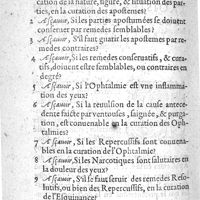 cation de la nature, figure, & situation des par-
ties, en la curation des apostemes?
2 Asçauoir, Si les parties apostumées se doiuent
conseruer par remedes semblables?
3 Asçauoir, S'il faut guarir les apostemes par re-
medes contraires?
4 Asçauoir, Si les remedes conseruatifs, & cura-
tifs, doiuent estre semblables, ou contraires en
degré?
5 Asçauoir, Si l'Ophtalmie est vne inflamma-
tion des yeux?
6 Asçauoir, Si la reuulsion de la cause antece-
dente faicte par ventouses, saignée, & purga-
tion, est conuenable en la curation des Oph-
talmies?
7 Asçauoir, Si les Repercussifs sont conuena-
bles en la curation de l'Ophtalmie?
8 Asçauoir, Si les Narcotiques sont salutaires en
la douleur des yeux?
9 Asçauoir, S'il se faut seruir des remedes Reso-
lutifs, ou bien des Repercussifs, en la curation
de l'Esquinance?